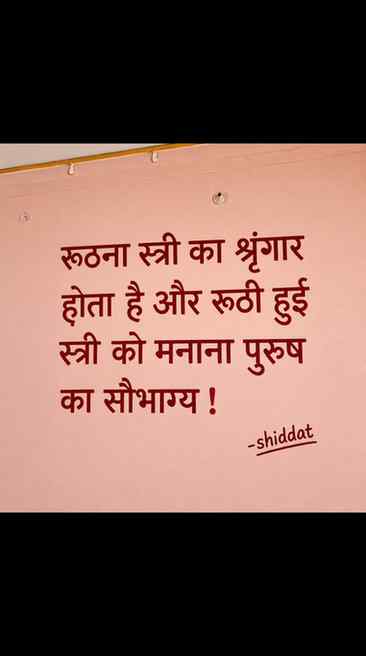 रूठना स्त्री का श्रृंगार
होता है और रूठी हुई
स्त्री को मनाना पुरुष
का सौभाग्य !
-shiddat